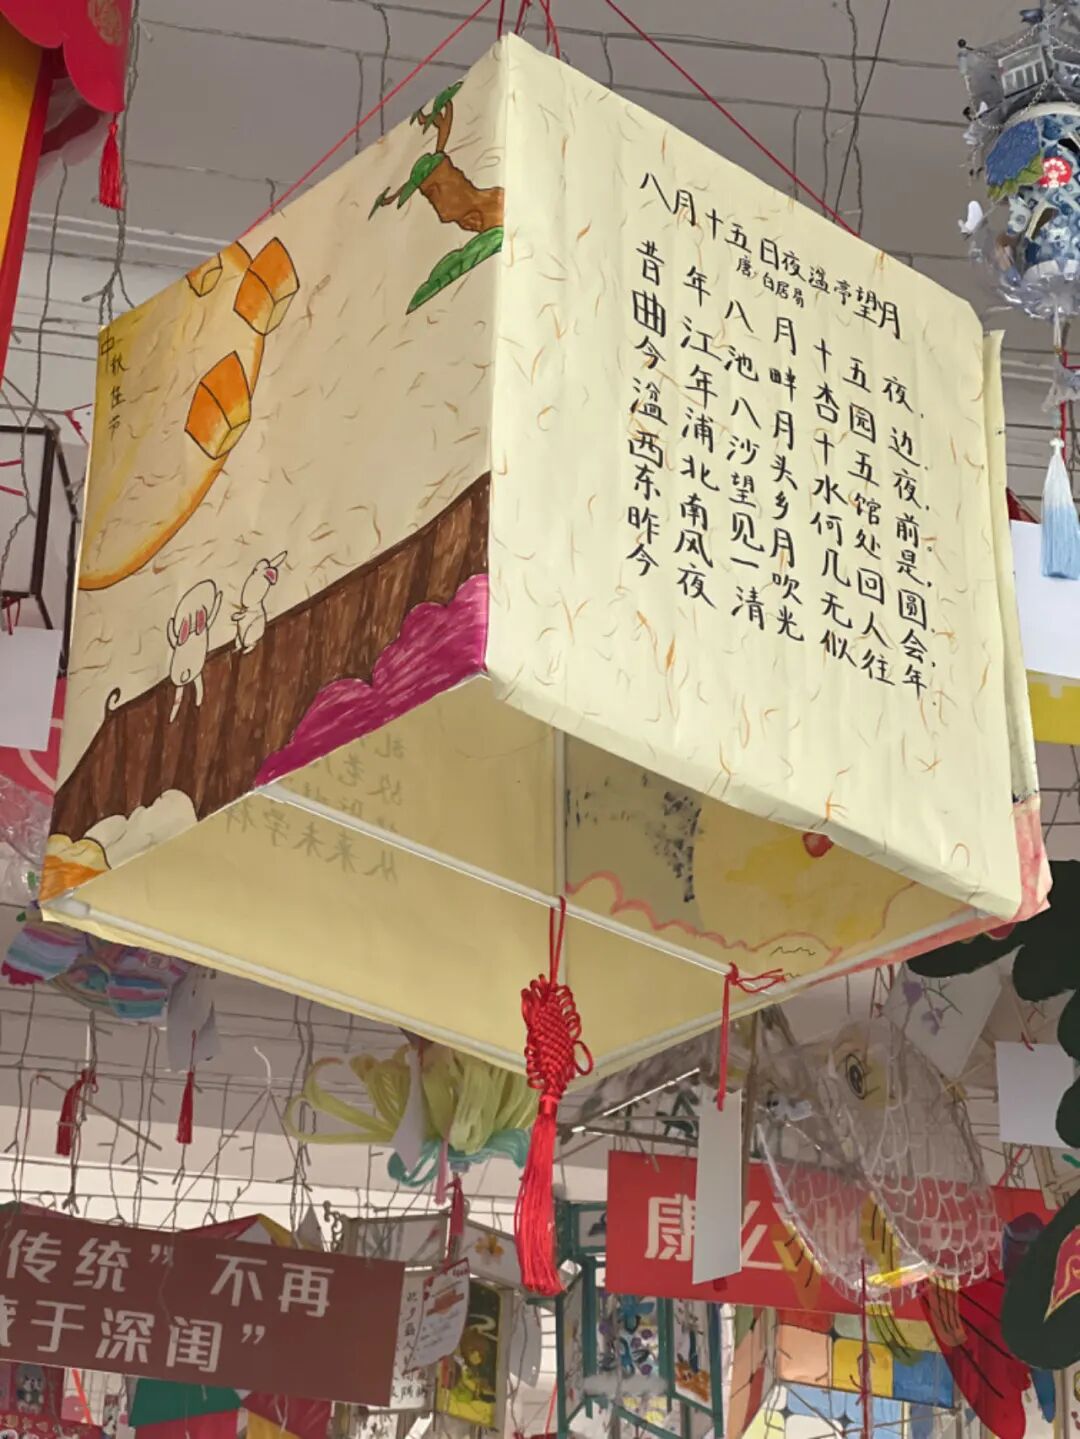 中秋佳节
八月十五日夜湓亭望月
唐 白居易
昔年八月十五夜，
曲江池畔杏园边．
今年八月十五夜，
湓浦沙头水馆前．
西北望乡何处是，
东南见月几回圆．
昨风一吹无人会，
今夜清光似往年．
传统” 不再
于深闺”
康